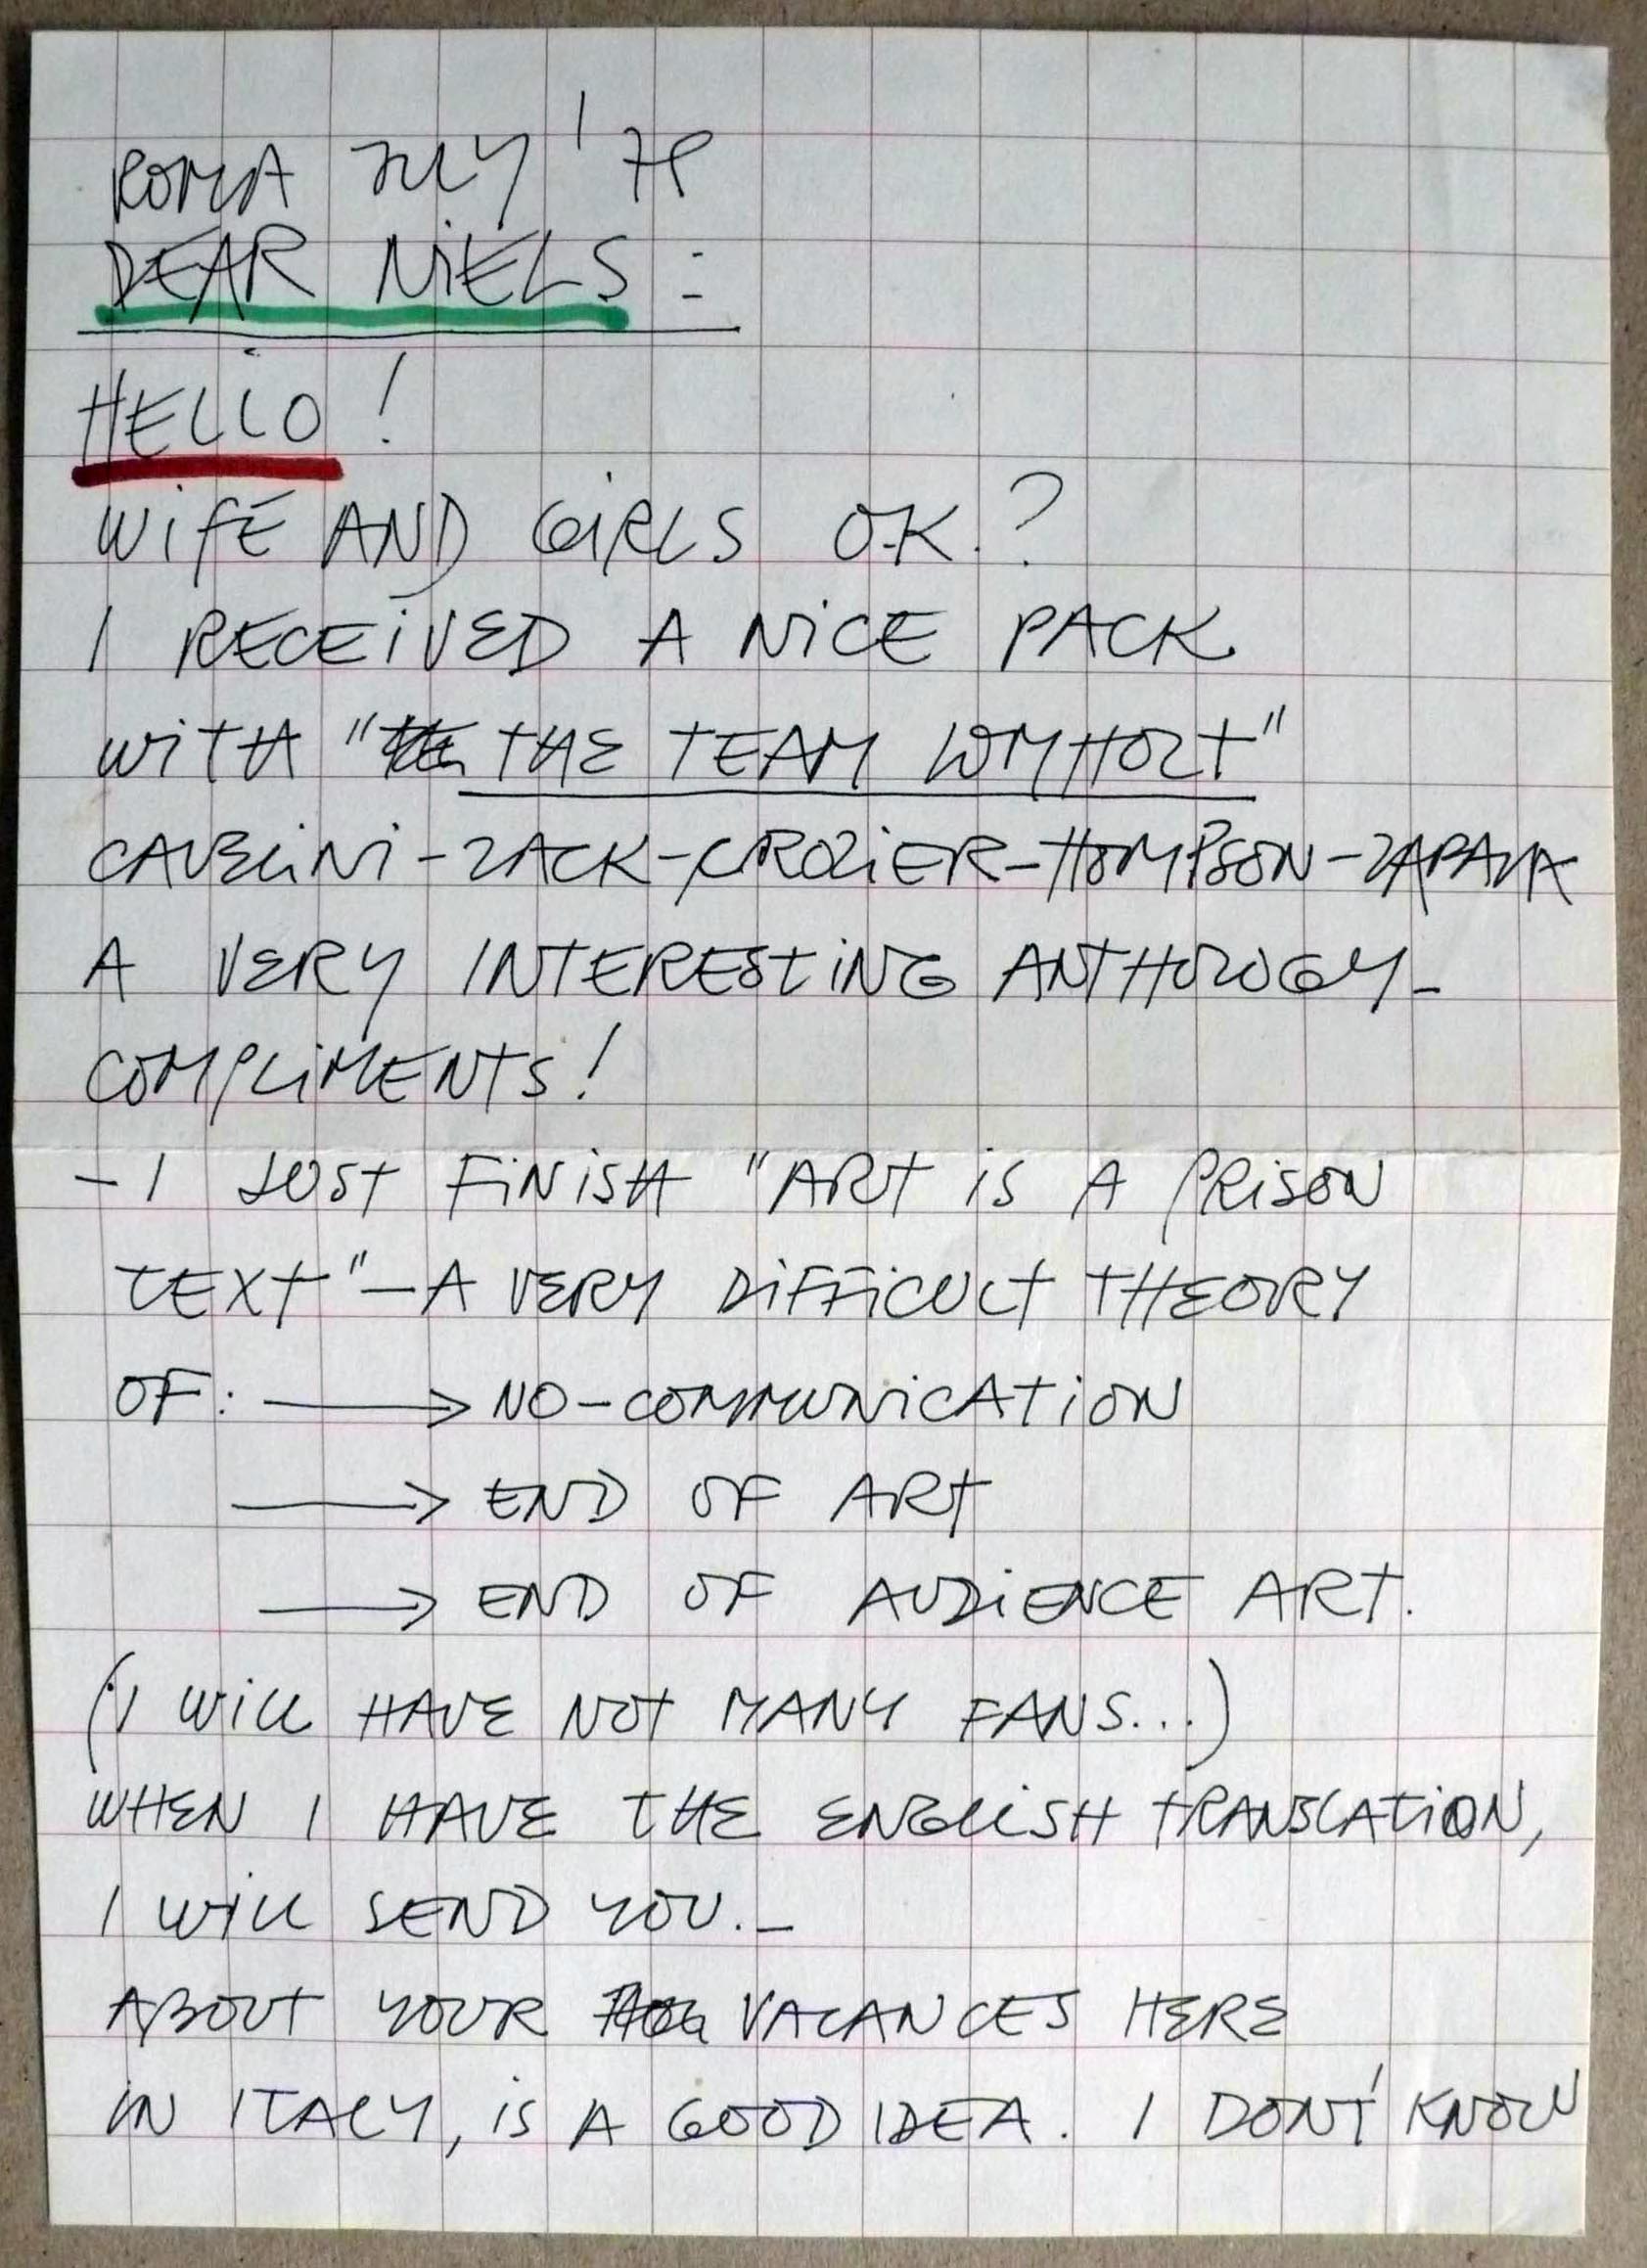 ROMA JULY '78
DEAR NIELS:
HELLO!
WIFE AND GIRLS O.K.?
I RECEIVED A NICE PACK
WITH " THE TEAM LOMHOLT"
CAVELLINI-ZACK-CROZIER-THOMPSON-ZAPATA
A VERY INTERESTING ANTHOLOGY-
COMPLIMENTS!
-I JUST FINISH "ART IS A PRISON
TEXT"-A VERY DIFFICULT THEORY
OF: → NO-COMMUNICATION
→ END OF ART
→ END OF AUDIENCE ART.
(I WILL HAVE NOT MANY FANS...)
WHEN I HAVE THE ENGLISH TRANSLATION,
I WILL SEND YOU.-
ABOUT YOUR VACANCES HERE
IN ITALY, IS A GOOD IDEA. I DON'T KNOW